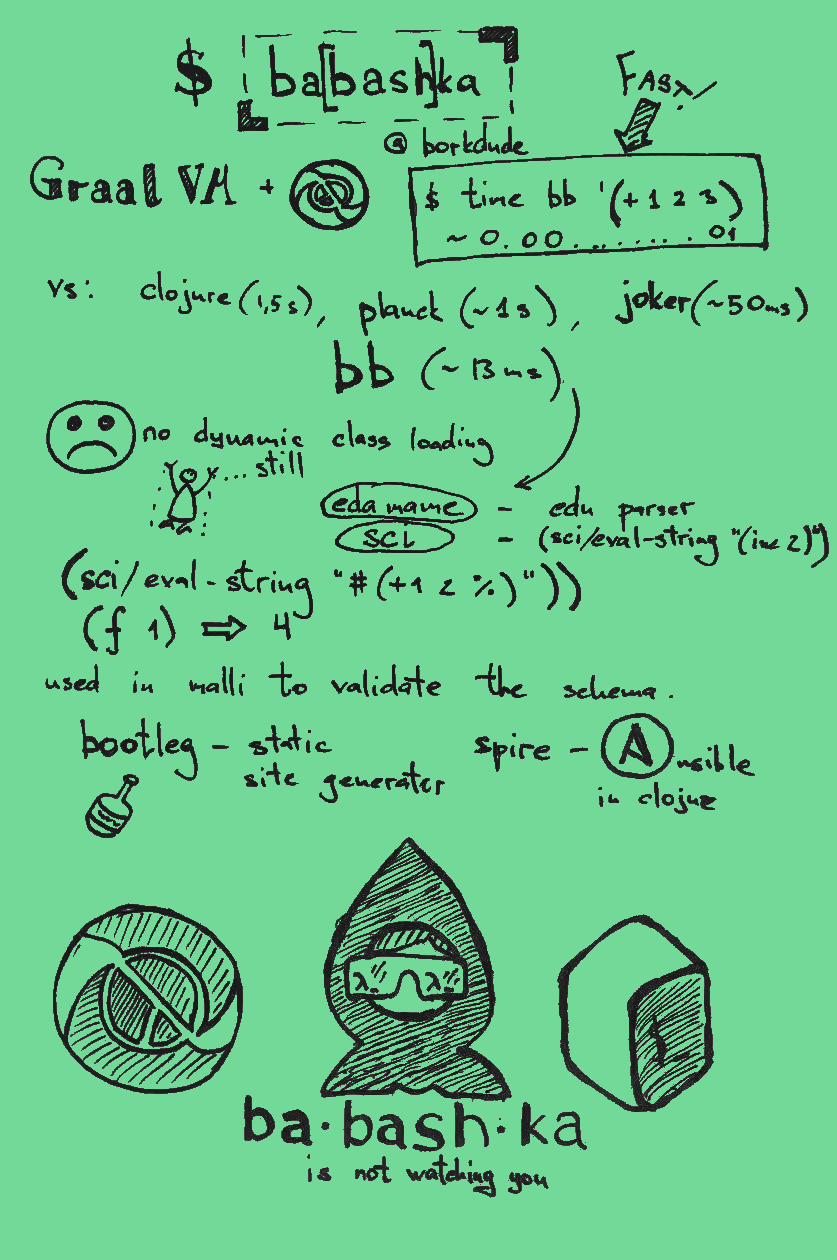 $ ba[bash]ka
FAST!
@ borkdude
Graal VM +
$ time bb '(+ 1 2 3)
~ 0.00.........01
vs: clojure (1,5 s), planck (~1s), joker (~50ms)
bb (~13 ms)
no dynamic class loading
...still
edamame - edn parser
SCI - (sci/eval-string "(inc 2)")
(sci/eval-string "#(+1 2 %)"))
(f 1) ⇒ 4
used in malli to validate the schema.
bootleg - static site generater
spire - Ansible in clojure
λ λ
$
ba·bash·ka
is not watching you